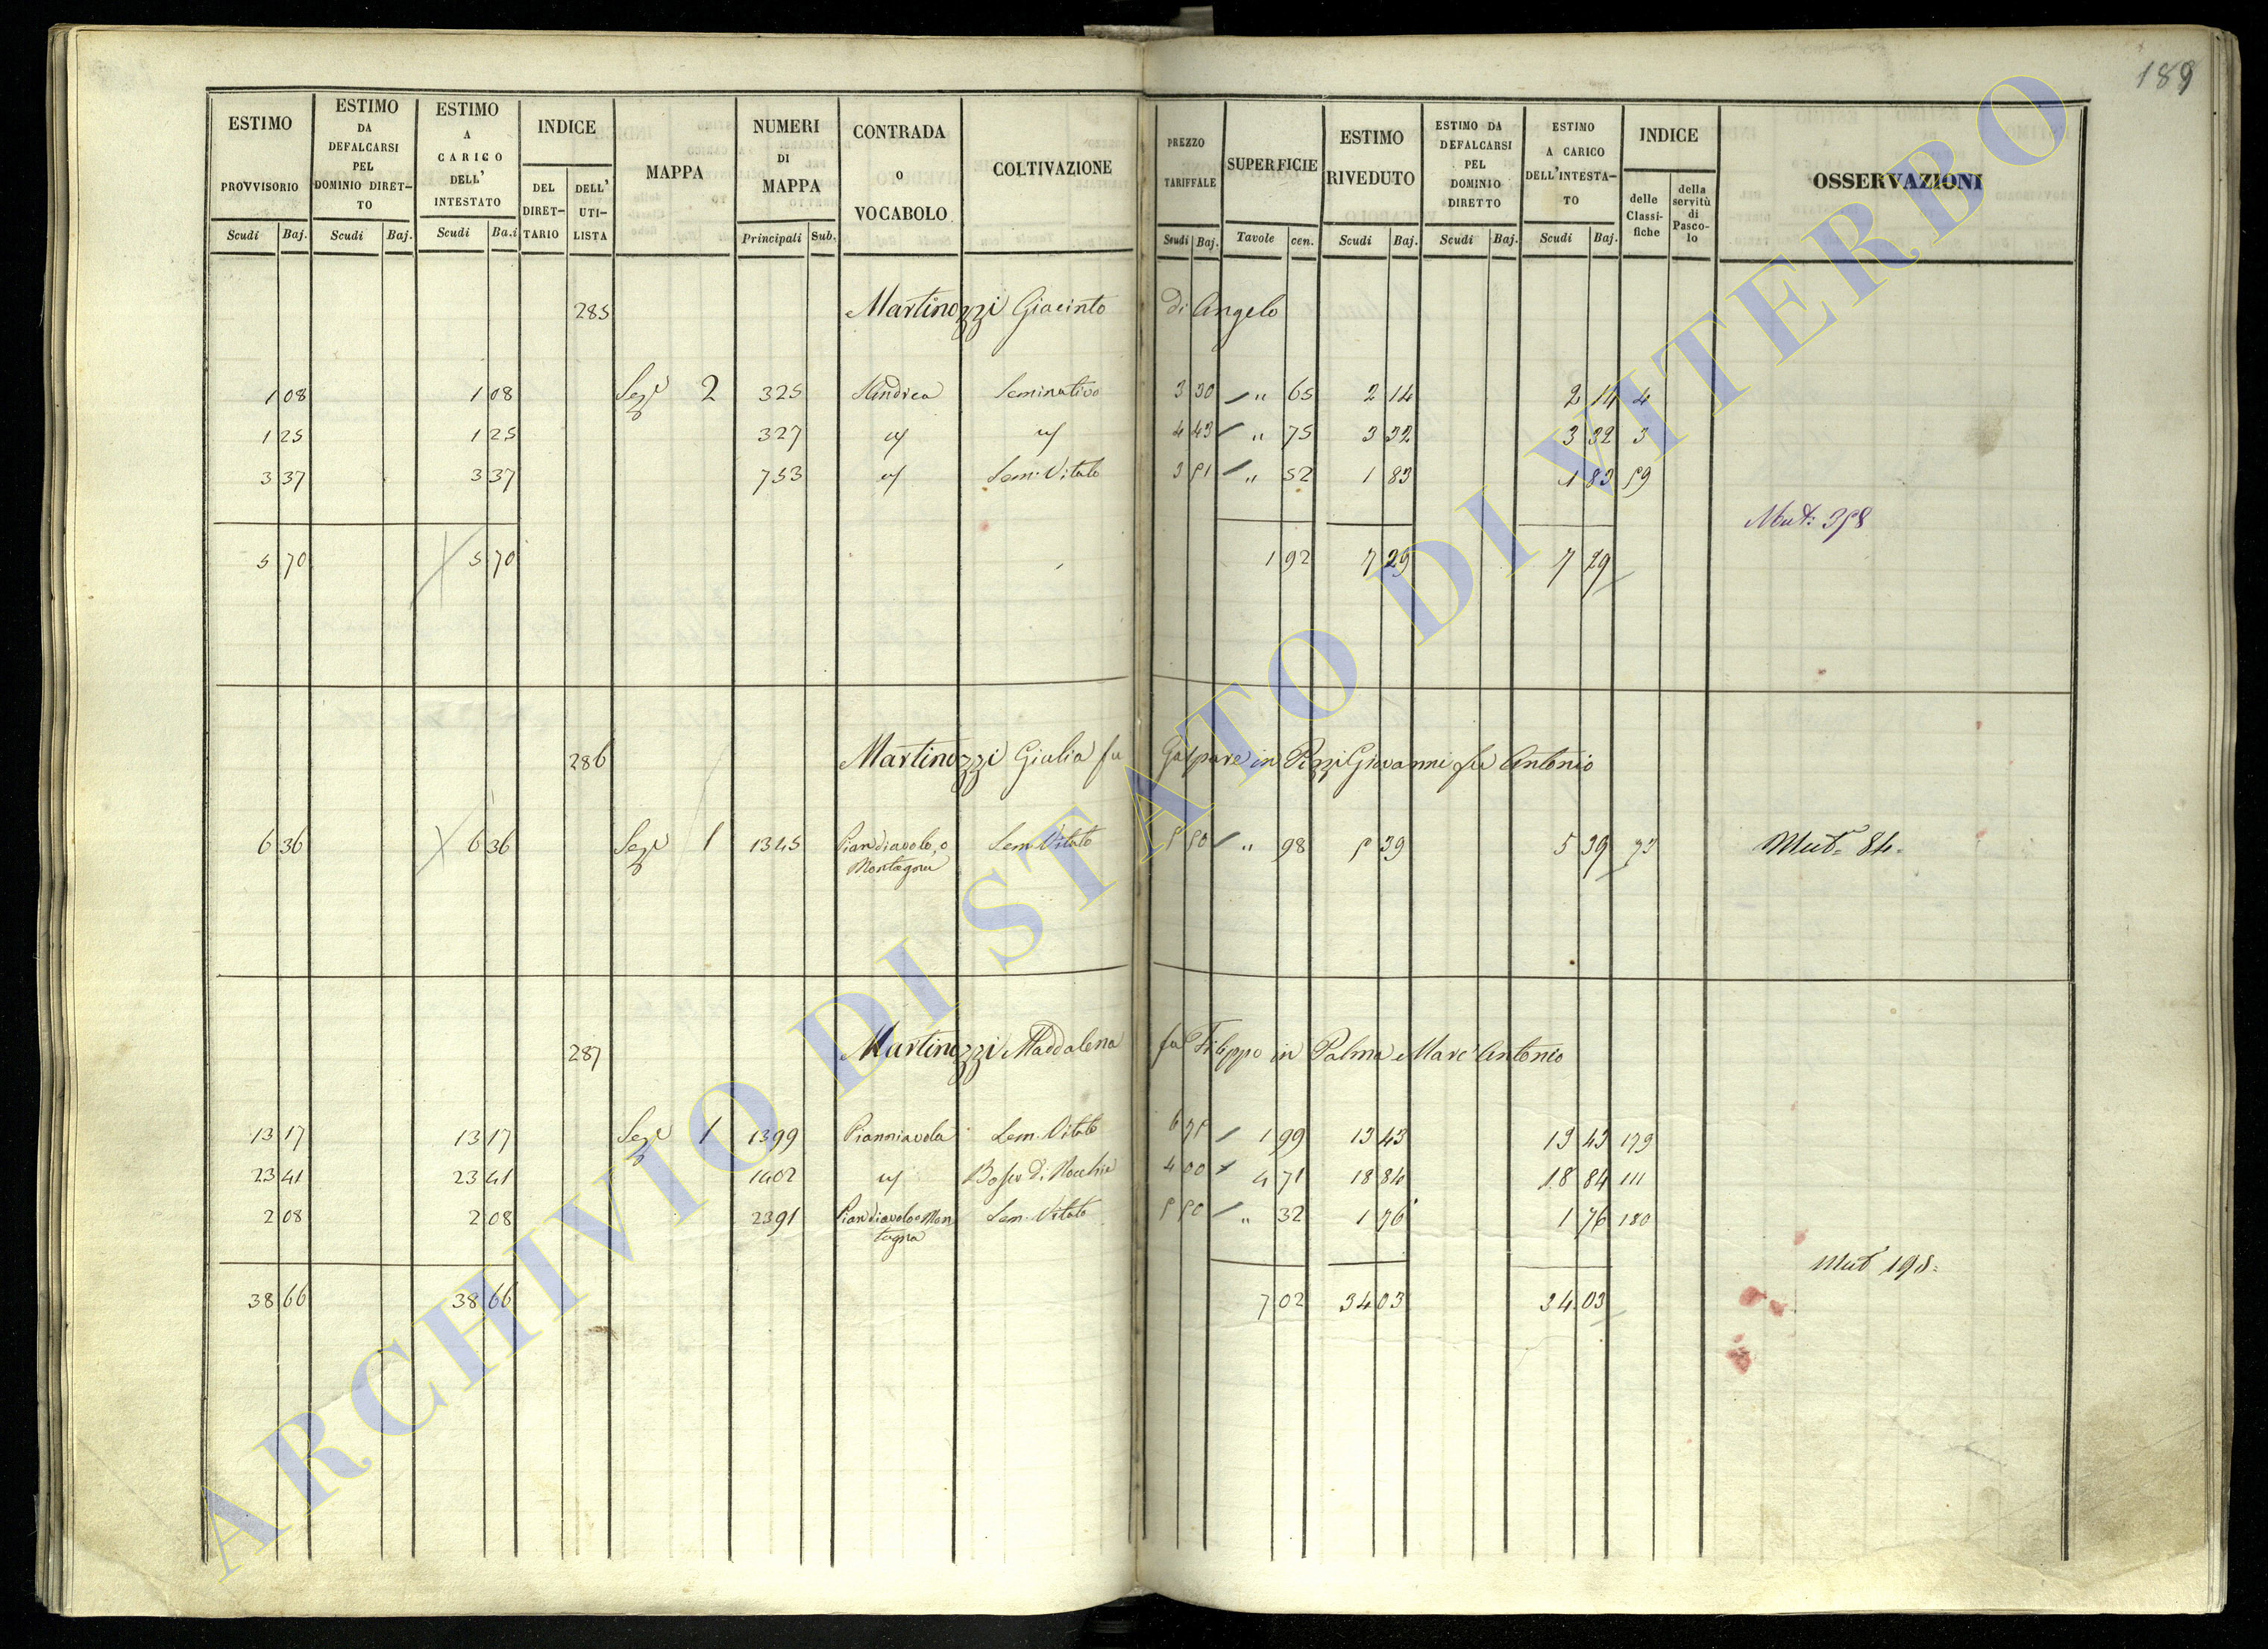 189
ESTIMO PROVVISORIO Scudi Baj.
ESTIMO DA DEFALCARSI PEL DOMINIO DIRET-TO Scudi Baj.
ESTIMO A CARICO DELL' INTESTATO Scudi Ba.i
INDICE DEL DIRET-TARIO DELL' UTI-LISTA
MAPPA
NUMERI DI MAPPA Principali Sub.
CONTRADA O VOCABOLO
COLTIVAZIONE
PREZZO TARIFFALE Scudi Baj.
SUPERFICIE Tavole cen.
ESTIMO RIVEDUTO Scudi Baj.
ESTIMO DA DEFALCARSI PEL DOMINIO DIRETTO Scudi Baj.
ESTIMO A CARICO DELL'INTESTA-TO Scudi Baj.
INDICE delle Classi-fiche della servitù di Pasco-lo
OSSERVAZIONI
285 Martinozzi Giacinto di Angelo
1 08 1 08 Sez.e 2 325 S.Andrea Seminativo 3 30 " 65 2 14 2 14 4
1 25 1 25 327 " " 4 43 " 75 3 32 3 32 3
3 37 3 37 753 " Sem. Vitato 3 51 " 52 1 83 1 83 59
Mut: 358
5 70 5 70 1 92 7 29 7 29
286 Martinozzi Giulia fu Gaspare in Pizzi Giovanni fu Antonio
6 36 6 36 Sez.e 1 1345 Piandiavolo, o Sem. Vitato 5 50 " 98 5 39 5 39 73 Mut. 84.
Montagna
287 Martinozzi Maddalena fu Filippo in Palma Marc'Antonio
13 17 13 17 Sez.e 1 1399 Pianniavola Sem. Vitato 6 75 1 99 13 43 13 43 179
23 41 23 41 1402 " Bosco di Nocchie 4 00 4 71 18 84 18 84 111
2 08 2 08 2391 Piandiavolo o Mon Sem. Vitato 5 50 " 32 1 76 1 76 180
tagna
Mut 198.
38 66 38 66 7 02 34 03 34 03
ARCHIVIO DI STATO DI VITERBO